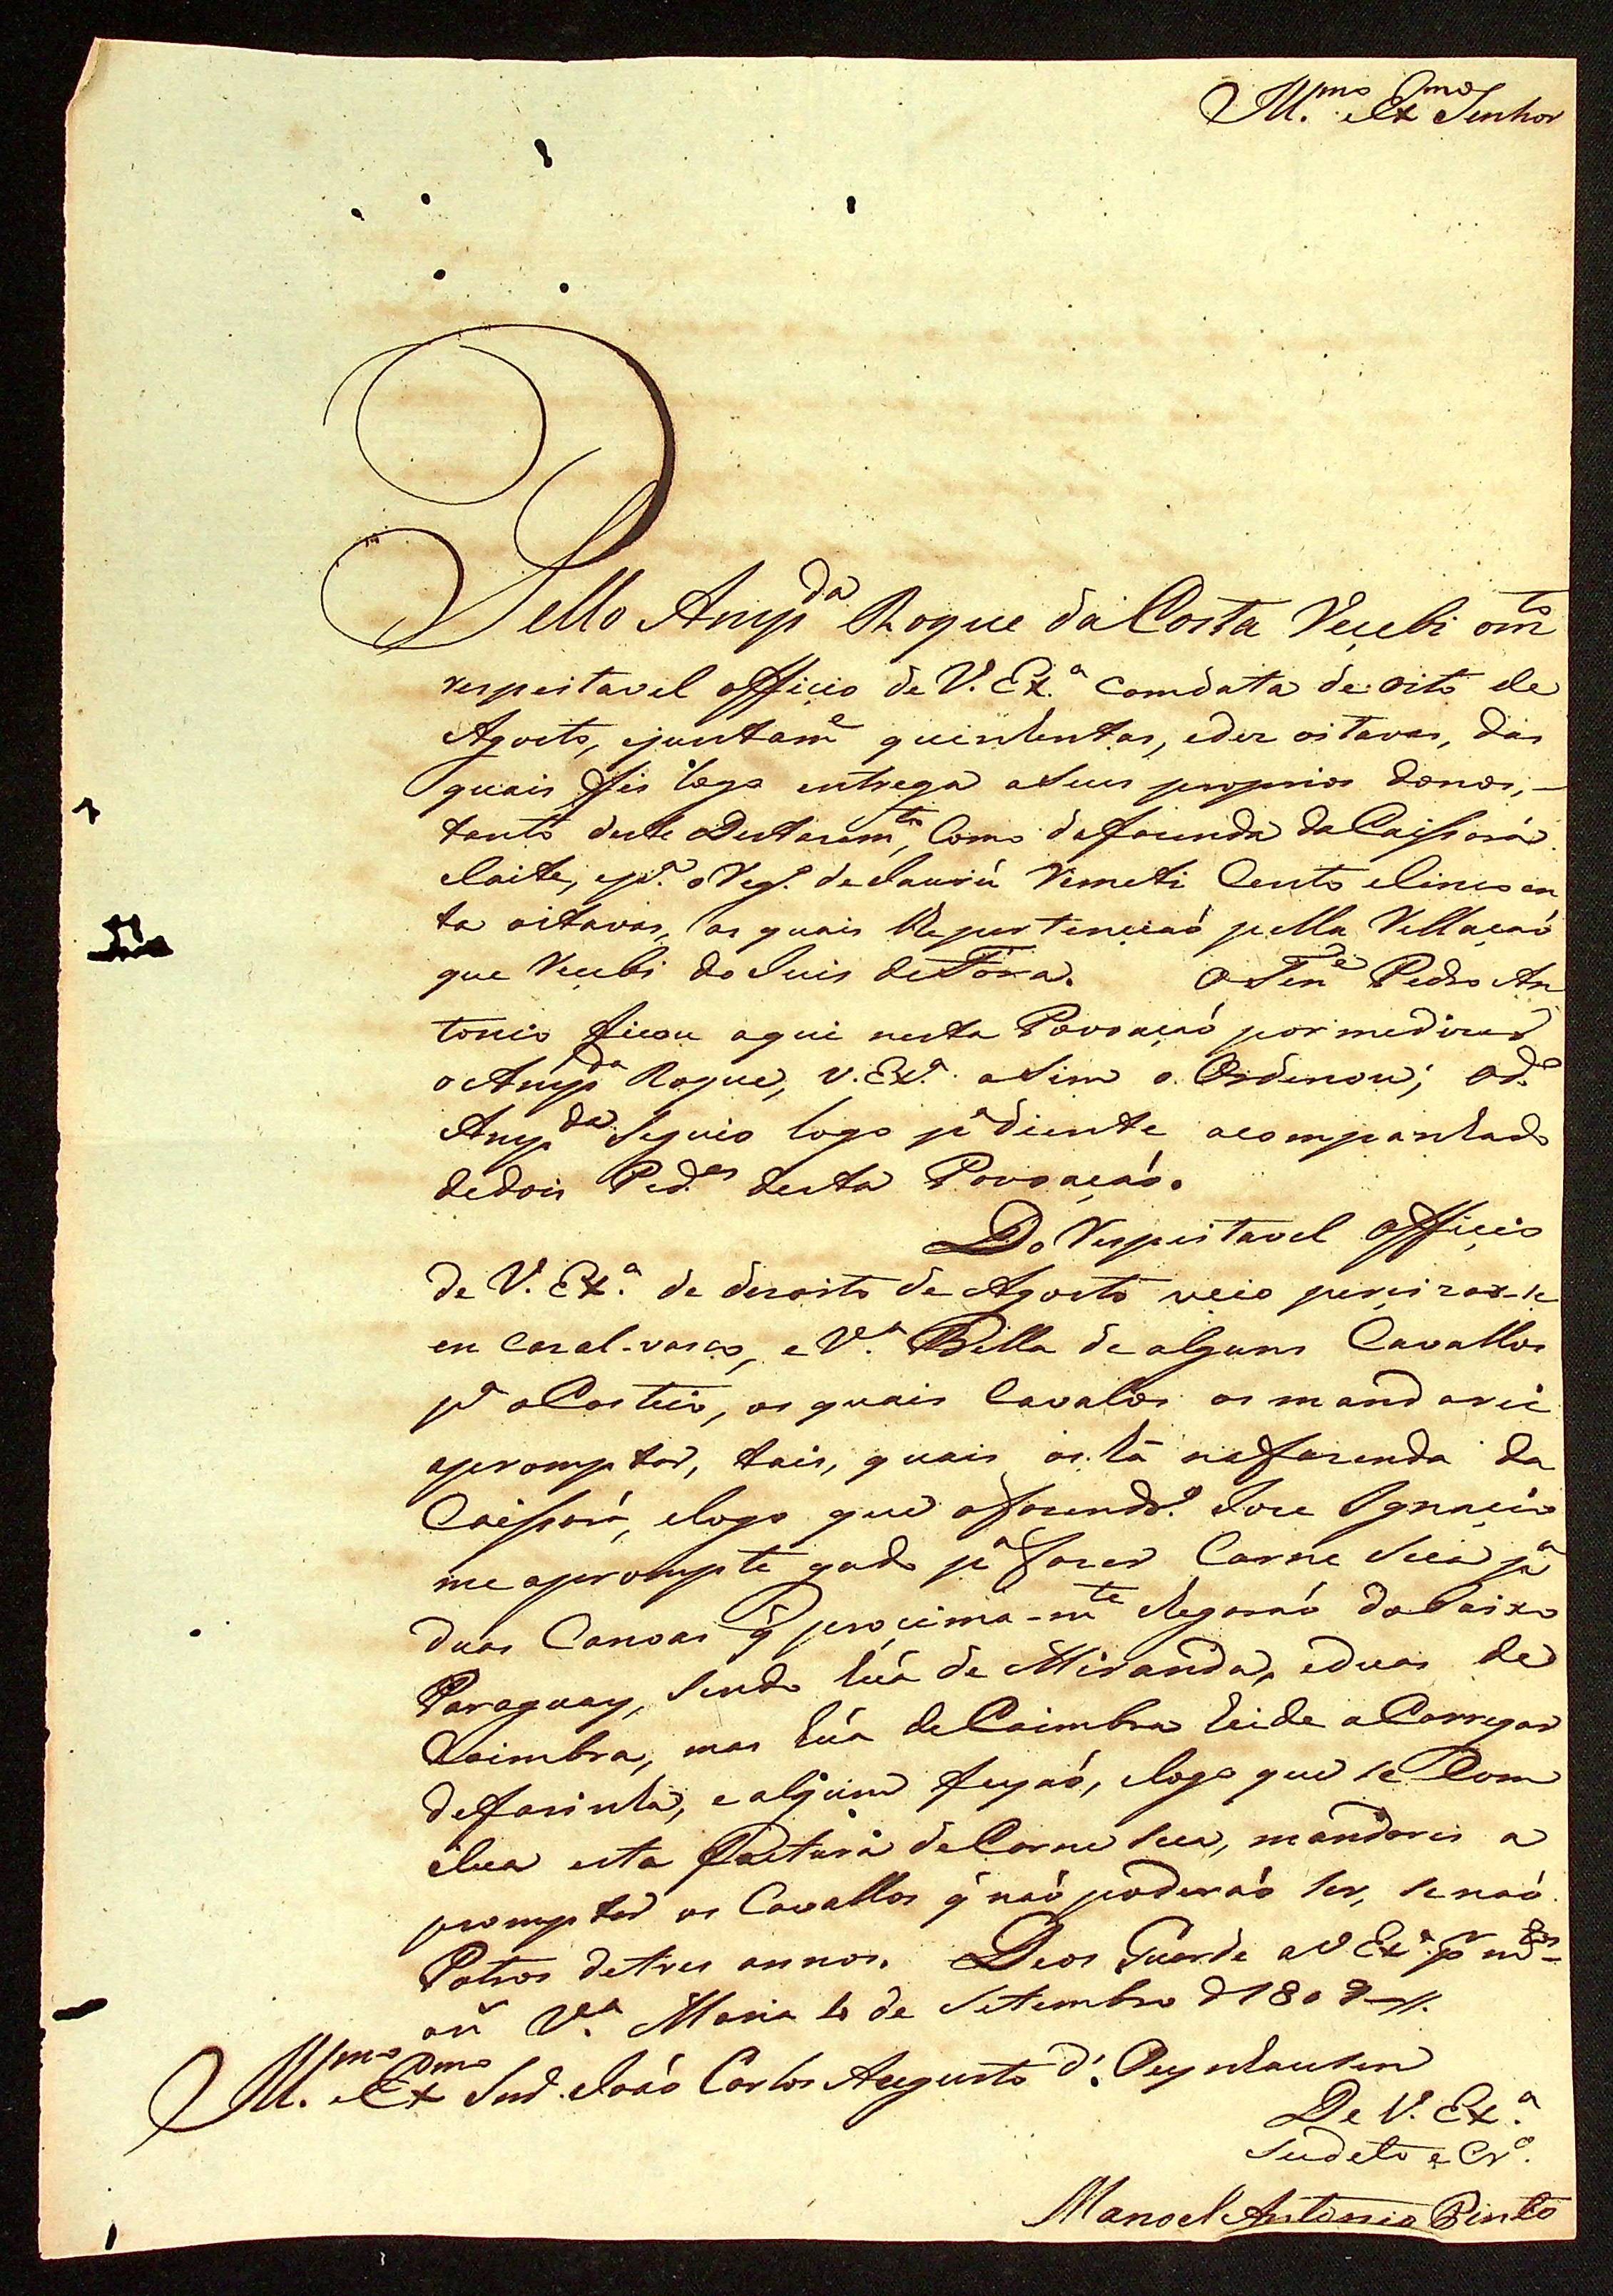 Ill.mo e Ex.mo Senhor
Pello Anspda Roque da Costa Recebi o m.to
respeitavel officio de V. Ex.a comdata de oito de
Agosto, ejuntam.e quinhentas, edez oitavas, das
quais fis logo entrega aSeus proprios donos,
tanto deste Destacam.to, Como dafazenda da Caissara
e p.a o de Jaurú Remeti Cento eSincoen
ta oitavas, as quais lhe pertenciaó pella Rellaçaó
que Recebi do Juis deFóra. O Ten.e Pedro An
tonio ficou aqui nesta Povoaçaó por medizer
o Anspda Roque, V. Ex.a aSim o Ordenou; o d.o
Anspda Seguio logo p.a diente acompanhado
dedois Ped.es desta Povoaçaó.
Do Respeitavel officio
de V. Ex.a de dezoito de Agosto vejo precizar-se
en Cazal-vasco, e V.a Bella de alguns Cavallos
p.a oCosteio, os quais Cavalos os mandarei
apromptar, tais, quais os há nafazenda da
Caissara, elogo que ofazend.o Joze Ignacio
me aprompte gado p.a fazer Carne Seca p.a
duas Canoas q̃ procima-m.te chegaraó do Baixo
Paraguay, Sendo húa de Miranda, eduas de
Coimbra, mas húa deCoimbra hé de aCarregar
defarinha, e algum feyjaó, elogo que se Com
clua esta factura deCarne Seca, mandarei a
promptar os Cavallos q̃ naó poderaó Ser, Senaó
Potros detres annos. Deos Guarde aV Ex.a p.r m.tos
an.s V.a Maria 4 de Setembro d 1808
Ill.mo e Ex.mo Snr. Joaó Carlos Augusto d'. Oeynhausen
De V. Ex.a
Sudeto e Cr.o
Manoel Antonio Pinto